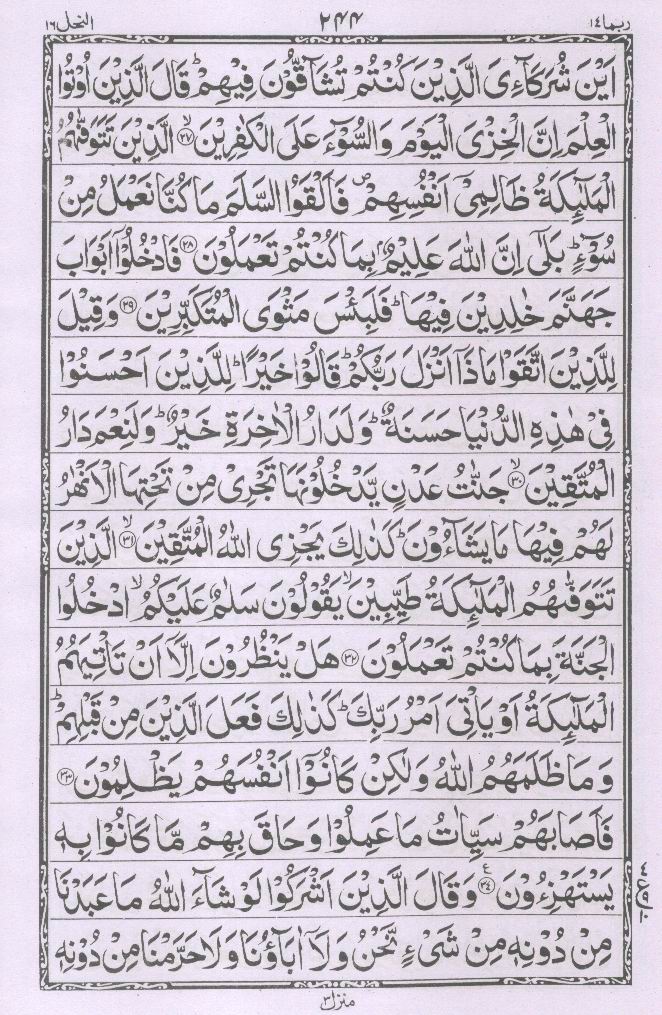 ربما ١٤
٢٤٤
النحل ١٦
اَيْنَ شُرَكَآءِىَ الَّذِيْنَ كُنْتُمْ تُشَآقُّوْنَ فِيْهِمْ ؕ قَالَ الَّذِيْنَ اُوْتُوا
الْعِلْمَ اِنَّ الْخِزْىَ الْيَوْمَ وَالسُّوْٓءَ عَلَى الْكٰفِرِيْنَ ۙ﴿۲۷﴾ الَّذِيْنَ تَتَوَفّٰىهُمُ
الْمَلٰٓئِكَةُ ظَالِمِىْٓ اَنْفُسِهِمْ ۪ فَاَلْقَوُا السَّلَمَ مَا كُنَّا نَعْمَلُ مِنْ
سُوْٓءٍ ؕ بَلٰٓى اِنَّ اللّٰهَ عَلِيْمٌۢ بِمَا كُنْتُمْ تَعْمَلُوْنَ ﴿۲۸﴾ فَادْخُلُوْۤا اَبْوَابَ
جَهَنَّمَ خٰلِدِيْنَ فِيْهَا ؕ فَلَبِئْسَ مَثْوَى الْمُتَكَبِّرِيْنَ ﴿۲۹﴾ وَقِيْلَ
لِلَّذِيْنَ اتَّقَوْا مَاذَاۤ اَنْزَلَ رَبُّكُمْ ؕ قَالُوْا خَيْرًا ؕ لِلَّذِيْنَ اَحْسَنُوْا
فِىْ هٰذِهِ الدُّنْيَا حَسَنَةٌ ؕ وَلَدَارُ الْاٰخِرَةِ خَيْرٌ ؕ وَلَنِعْمَ دَارُ
الْمُتَّقِيْنَ ۙ﴿۳۰﴾ جَنّٰتُ عَدْنٍ يَّدْخُلُوْنَهَا تَجْرِىْ مِنْ تَحْتِهَا الْاَنْهٰرُ
لَهُمْ فِيْهَا مَا يَشَآءُوْنَ ؕ كَذٰلِكَ يَجْزِى اللّٰهُ الْمُتَّقِيْنَ ۙ﴿۳۱﴾ الَّذِيْنَ
تَتَوَفّٰىهُمُ الْمَلٰٓئِكَةُ طَيِّبِيْنَ ۙ يَقُوْلُوْنَ سَلٰمٌ عَلَيْكُمُ ۙ ادْخُلُوا
الْجَنَّةَ بِمَا كُنْتُمْ تَعْمَلُوْنَ ﴿۳۲﴾ هَلْ يَنْظُرُوْنَ اِلَّاۤ اَنْ تَاْتِيَهُمُ
الْمَلٰٓئِكَةُ اَوْ يَاْتِىَ اَمْرُ رَبِّكَ ؕ كَذٰلِكَ فَعَلَ الَّذِيْنَ مِنْ قَبْلِهِمْ ؕ
وَمَا ظَلَمَهُمُ اللّٰهُ وَلٰكِنْ كَانُوْۤا اَنْفُسَهُمْ يَظْلِمُوْنَ ﴿۳۳﴾
فَاَصَابَهُمْ سَيِّاٰتُ مَا عَمِلُوْا وَحَاقَ بِهِمْ مَّا كَانُوْا بِهٖ
يَسْتَهْزِءُوْنَ ﴿۳۴﴾ ع وَقَالَ الَّذِيْنَ اَشْرَكُوْا لَوْ شَآءَ اللّٰهُ مَا عَبَدْنَا
مِنْ دُوْنِهٖ مِنْ شَىْءٍ نَّحْنُ وَلَاۤ اٰبَآؤُنَا وَلَا حَرَّمْنَا مِنْ دُوْنِهٖ
منزل ٣